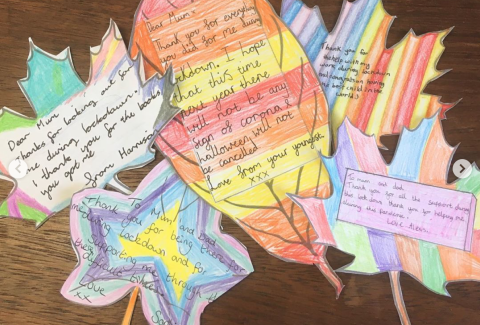 Dear Mum
Thanks for looking out for
me during lockdown.
I thank you for the books
you got me
from
Dear Mum,
Thank you for everything
you did for me during
lockdown. I hope
that this time
next year there
will not be any
sign of corona &
halloween will not
be cancelled
Love from your youngest
xxx
Thank you for
during lockdown
and
best child in the
world)
To mum and dad,
Thank you for all the support during
thank you for helping me
during this
Love
To Mum and Dad
Thank you for being there for
me during lockdown and for
supporting me through
Love
xx